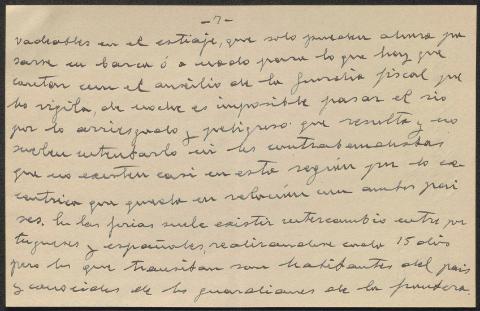 -7-
vadeables en el estiaje, que solo pueden ahora pa
sarse en barca ó a nado para lo que hay que
contar con el auxilio de la Guardia fiscal que
los vigila, de noche es imposible pasar el rio
por lo arriesgado y peligroso que resulta y no
suelen intentarlo ni los contrabandistas
que no existen casi en esta región por lo ex
centrica que queda en relación con ambos pai
ses. En las ferias suele existir intercambio entre por
tugueses y españoles, realizandose cada 15 dias
pero los que transitan son habitantes del pais
y conocidos de los guardianes de la frontera.